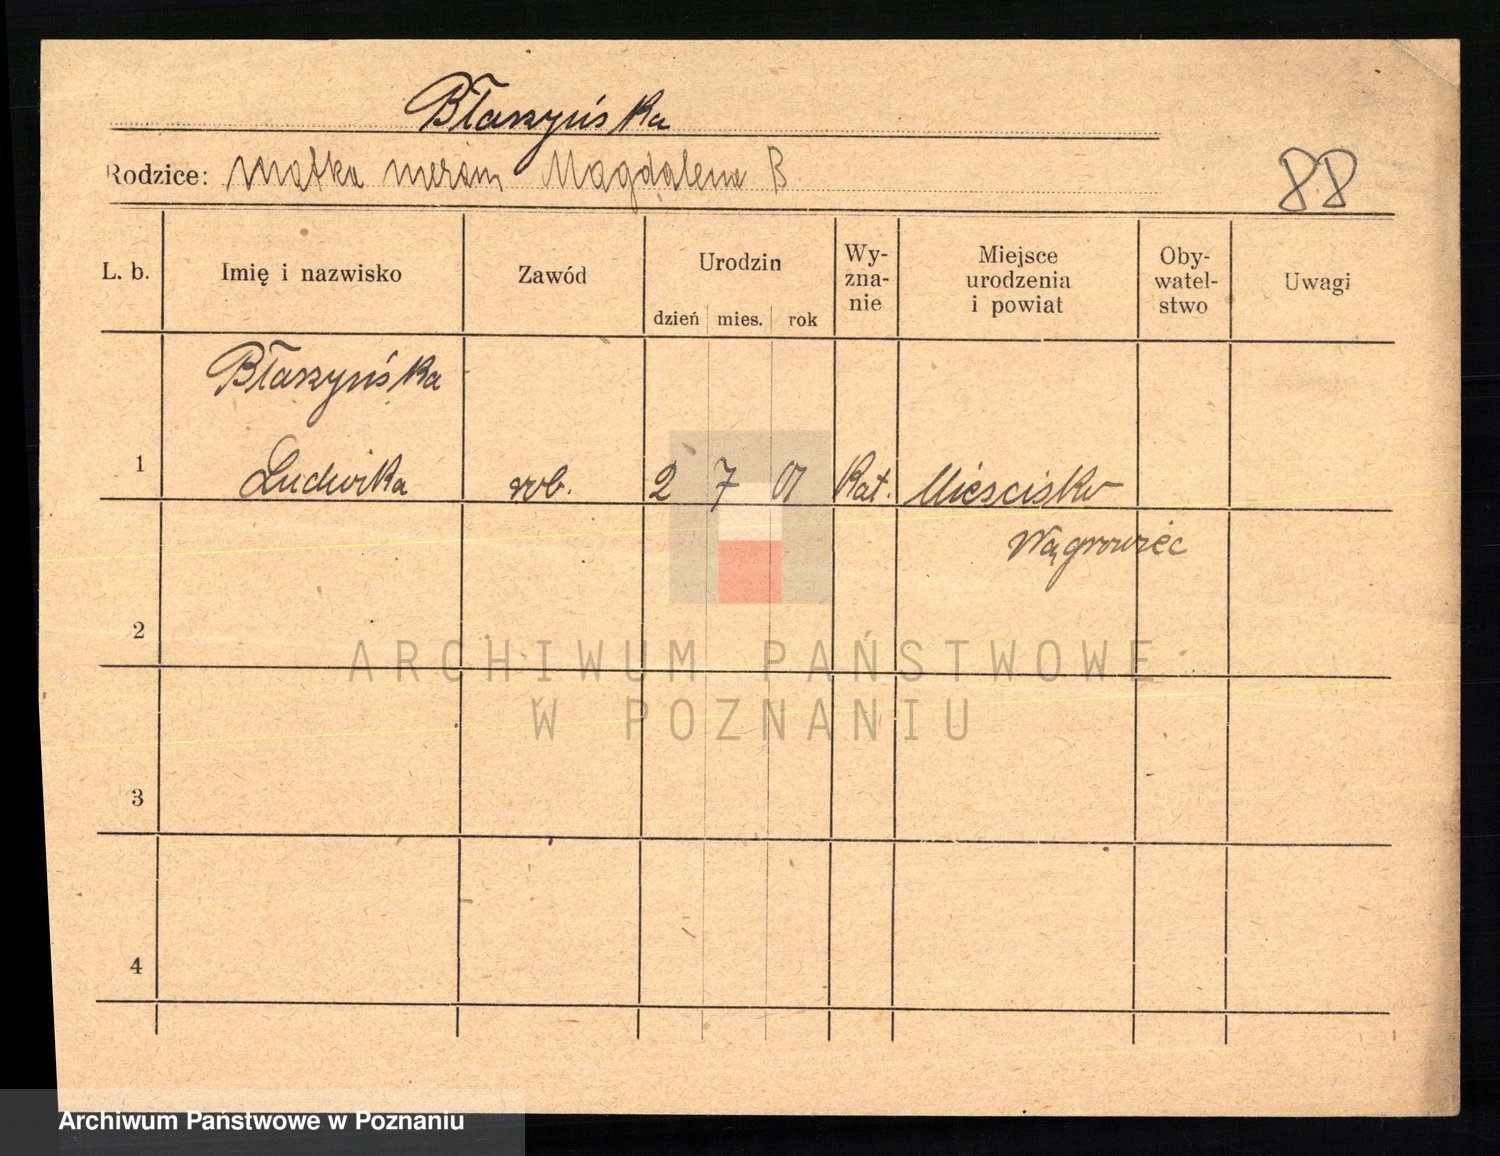 Błaszyńska
Rodzice: matka Magdalena B.
88
L. b. Imię i nazwisko Zawód Urodzin Wy-zna-nie Miejsce urodzenia i powiat Oby-watel-stwo Uwagi
dzień mies. rok
Błaszyńska
1 Ludwika rob. 2 7 01 Kat. Mieścisko
Wągrowiec
2
ARCHIWUM PAŃSTWOWE
W POZNANIU
3
4
Archiwum Państwowe w Poznaniu